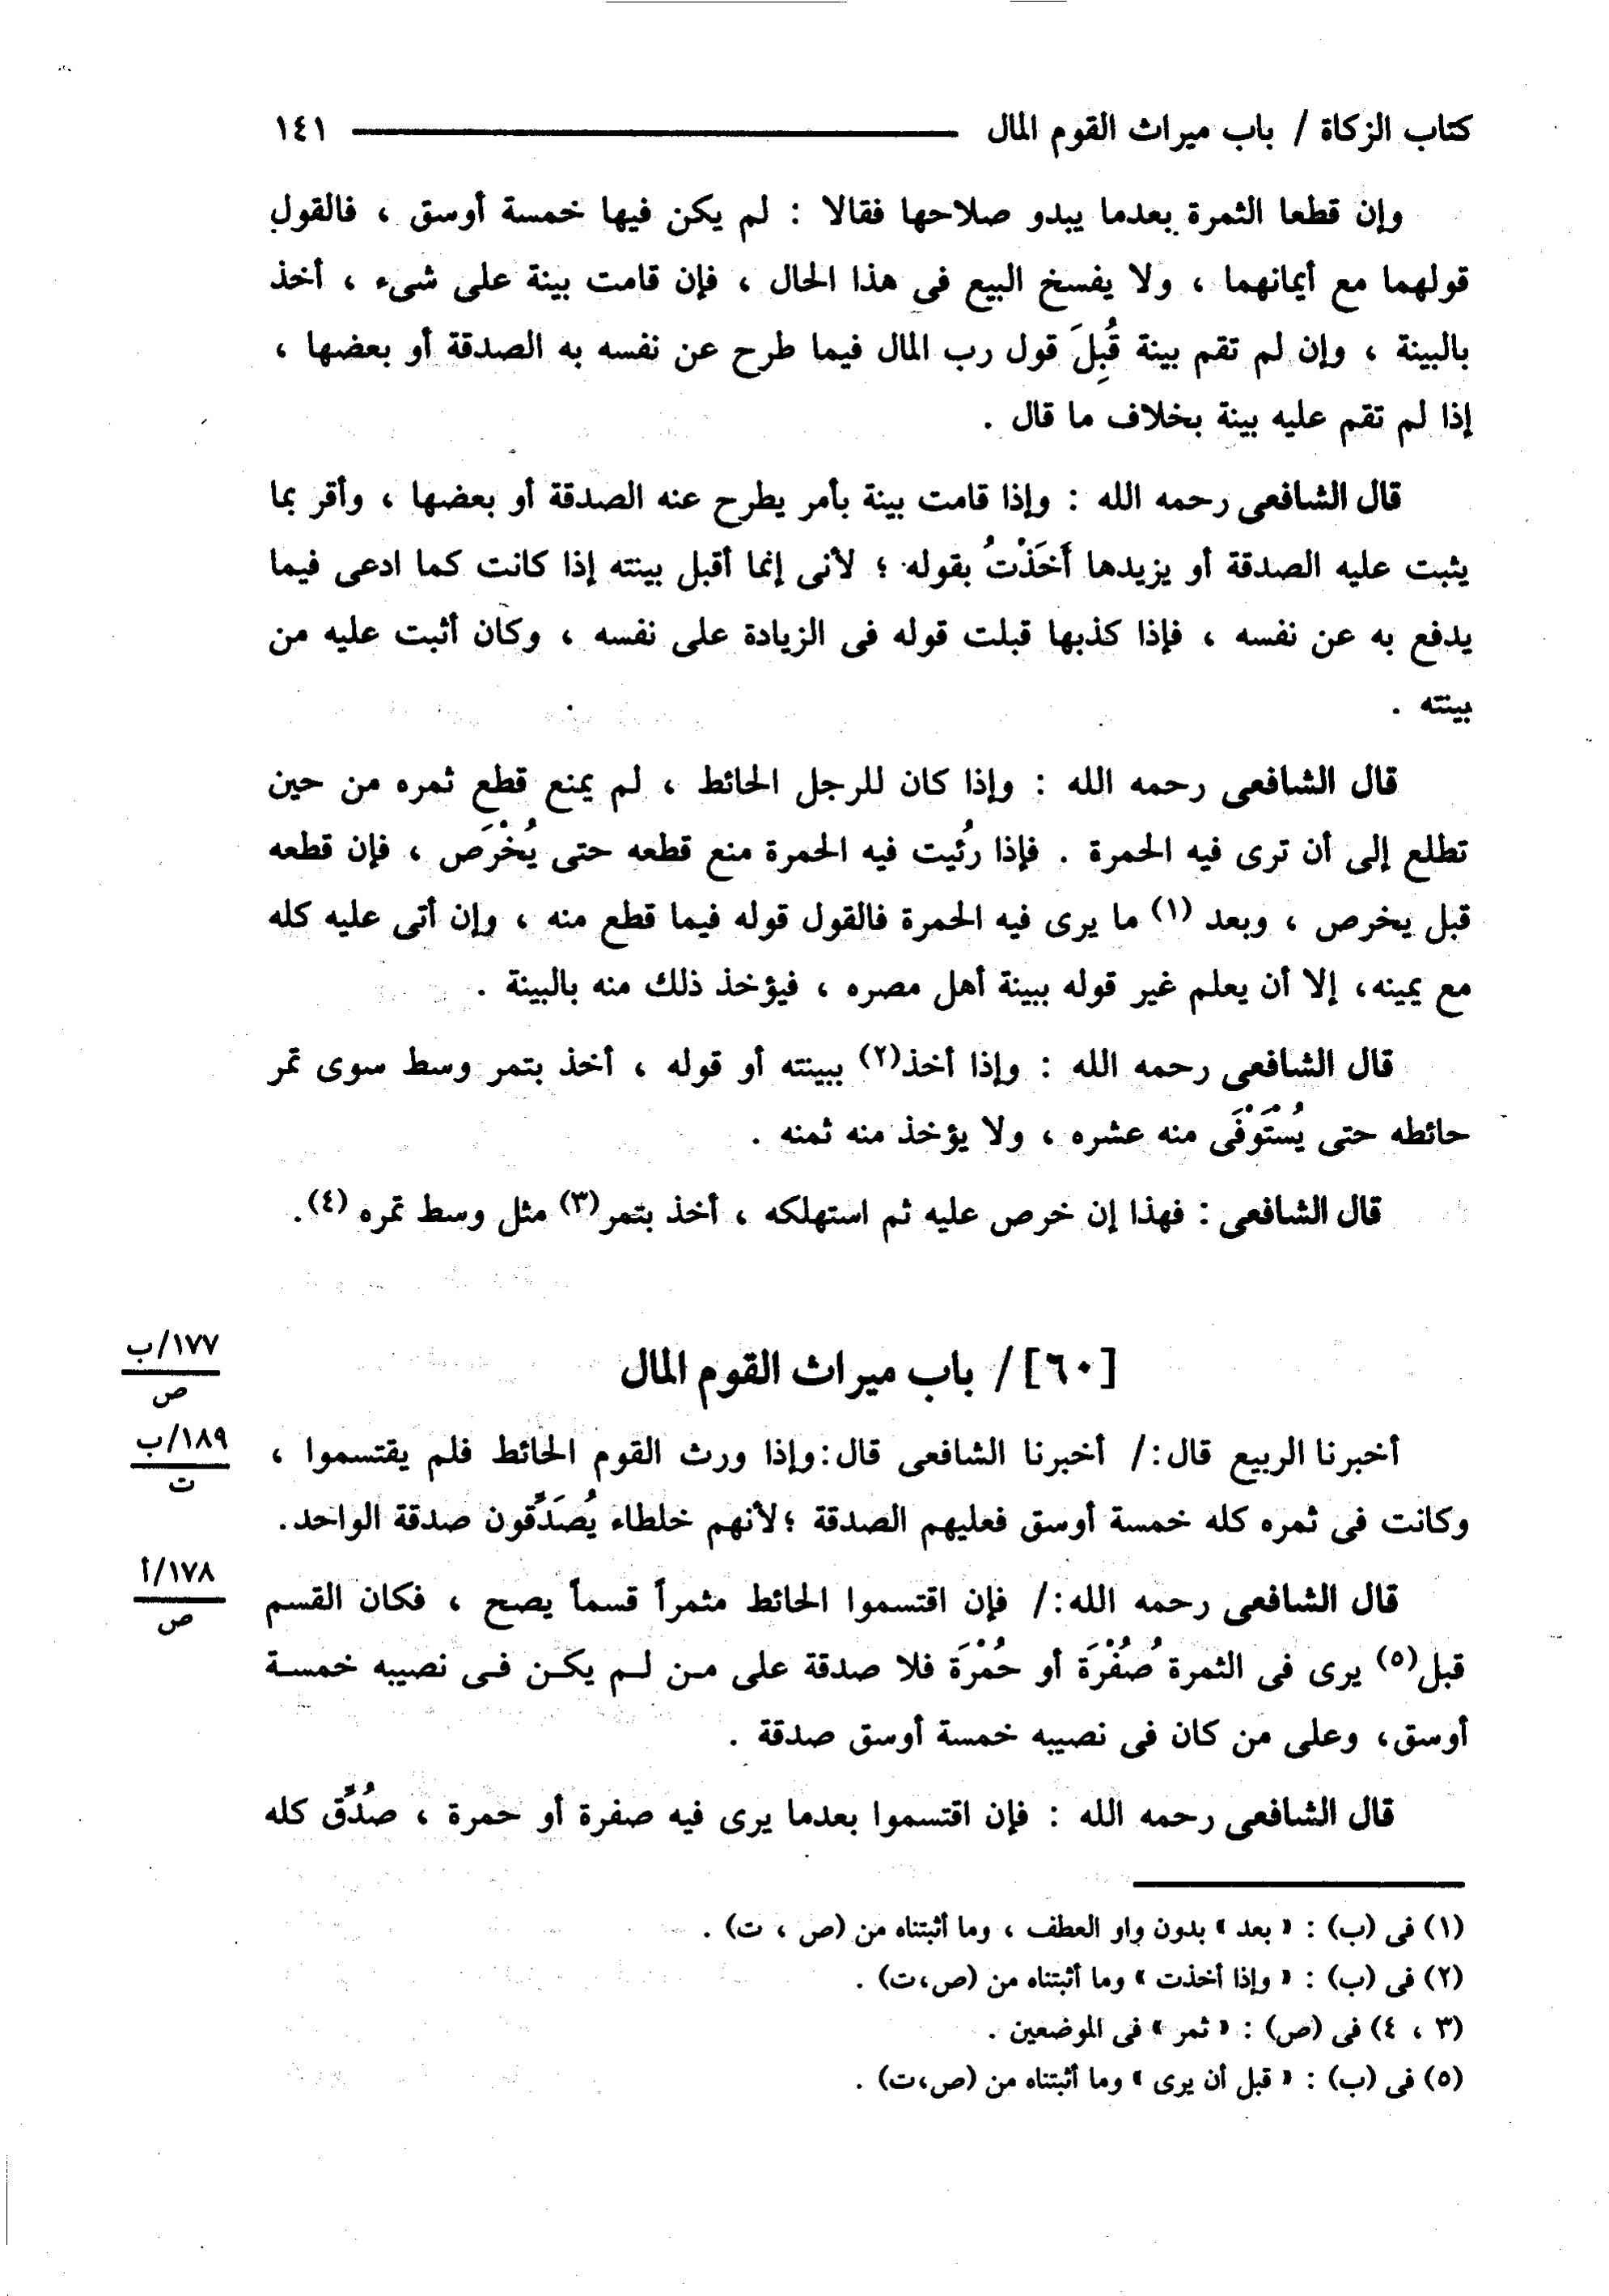 كتاب الزكاة / باب ميراث القوم المال ١٤١
وإن قطعا الثمرة بعدما يبدو صلاحها فقالا : لم يكن فيها خمسة أوسق ، فالقول
قولهما مع أيمانهما ، ولا يفسخ البيع فى هذا الحال ، فإن قامت بينة على شىء ، أخذ
بالبينة ، وإن لم تقم بينة قُبِلَ قول رب المال فيما طرح عن نفسه به الصدقة أو بعضها ،
إذا لم تقم عليه بينة بخلاف ما قال .
قال الشافعى رحمه الله : وإذا قامت بينة بأمر يطرح عنه الصدقة أو بعضها ، وأقر بما
يثبت عليه الصدقة أو يزيدها أَخَذْتُ بقوله ؛ لأنى إنما أقبل بينته إذا كانت كما ادعى فيما
يدفع به عن نفسه ، فإذا كذبها قبلت قوله فى الزيادة على نفسه ، وكان أثبت عليه من
بينته .
قال الشافعى رحمه الله : وإذا كان للرجل الحائط ، لم يمنع قطع ثمره من حين
تطلع إلى أن ترى فيه الحمرة . فإذا رُئيت فيه الحمرة منع قطعه حتى يُخْرَص ، فإن قطعه
قبل يخرص ، وبعد (١) ما يرى فيه الحمرة فالقول قوله فيما قطع منه ، وإن أتى عليه كله
مع يمينه، إلا أن يعلم غير قوله ببينة أهل مصره ، فيؤخذ ذلك منه بالبينة .
قال الشافعى رحمه الله : وإذا أخذ(٢) ببينته أو قوله ، أخذ بتمر وسط سوى تمر
حائطه حتى يُسْتَوْفَى منه عشره ، ولا يؤخذ منه ثمنه .
قال الشافعى : فهذا إن خرص عليه ثم استهلكه ، أخذ بتمر(٣) مثل وسط تمره (٤).
١٧٧/ب
ص
[٦٠] / باب ميراث القوم المال
١٨٩/ب
ت
أخبرنا الربيع قال:/ أخبرنا الشافعى قال:وإذا ورث القوم الحائط فلم يقتسموا ،
وكانت فى ثمره كله خمسة أوسق فعليهم الصدقة ؛لأنهم خلطاء يُصَدَّقون صدقة الواحد.
١٧٨/أ
ص
قال الشافعى رحمه الله:/ فإن اقتسموا الحائط مثمراً قسماً يصح ، فكان القسم
قبل(٥) يرى فى الثمرة صُفْرَة أو حُمْرَة فلا صدقة على من لم يكن فى نصيبه خمسة
أوسق، وعلى من كان فى نصيبه خمسة أوسق صدقة .
قال الشافعى رحمه الله : فإن اقتسموا بعدما يرى فيه صفرة أو حمرة ، صُدِّق كله
(١) فى (ب) : « بعد » بدون واو العطف ، وما أثبتناه من (ص ، ت) .
(٢) فى (ب) : « وإذا أخذت » وما أثبتناه من (ص،ت) .
(٣ ، ٤) فى (ص) : « ثمر » فى الموضعين .
(٥) فى (ب) : « قبل أن يرى » وما أثبتناه من (ص،ت) .